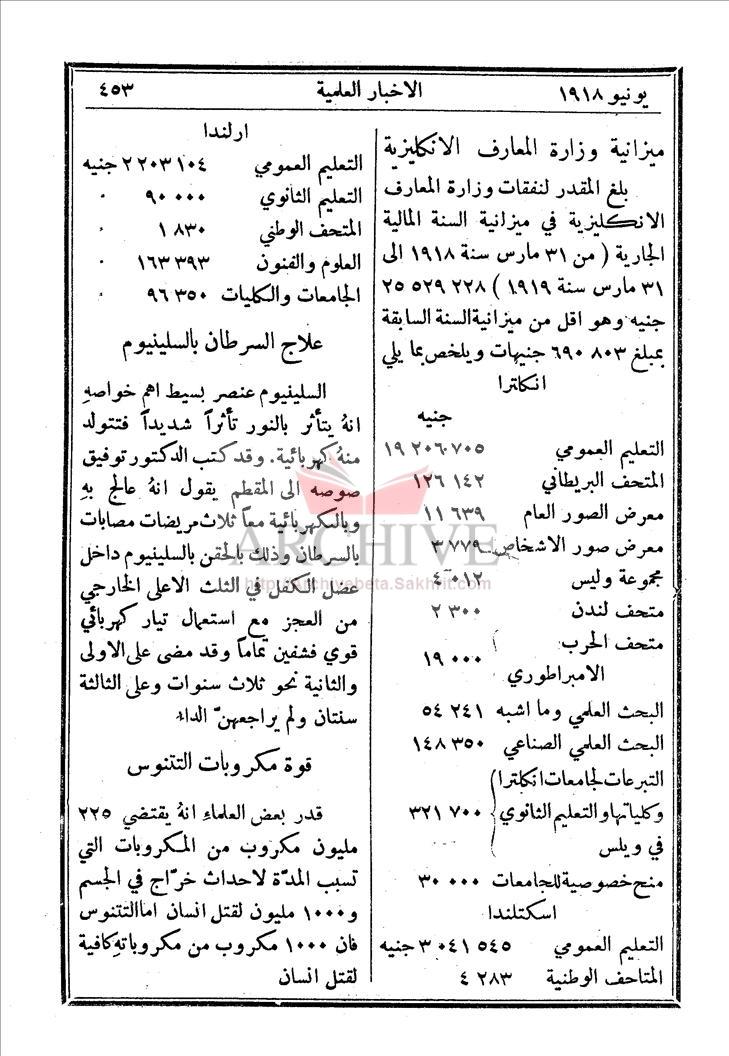 يونيو ١٩١٨
الاخبار العلمية
٤٥٣
ميزانية وزارة المعارف الانكليزية
بلغ المقدر لنفقات وزارة المعارف
الانكليزية في ميزانية السنة المالية
الجارية ( من ٣١ مارس سنة ١٩١٨ الى
٣١ مارس سنة ١٩١٩ ) ٢٢٨ ٥٢٩ ٢٥
جنيه وهو اقل من ميزانية السنة السابقة
بمبلغ ٨٠٣ ٦٩٠ جنيهات ويلخص بما يلي
انكلترا
جنيه
التعليم العمومي ٧٠٥ ٢٠٦ ١٩
المتحف البريطاني ١٤٢ ١٢٦
معرض الصور العام ٦٣٩ ١١
معرض صور الاشخاص ٧٧٩ ٣
مجموعة وليس ٠١٢ ٤
متحف لندن ٣٠٠ ٢
متحف الحرب
الامبراطوري ٠٠٠ ١٩
البحث العلمي وما اشبه ٢٤١ ٥٤
البحث العلمي الصناعي ٣٥٠ ١٤٨
التبرعات لجامعات انكلترا
وكلياتها والتعليم الثانوي ٧٠٠ ٣٢١
في ويلس
منح خصوصية للجامعات ٠٠٠ ٣٠
اسكتلندا
التعليم العمومي ٥٤٥ ٠٤١ ٣ جنيه
المتاحف الوطنية ٢٨٣ ٤
ارلندا
التعليم العمومي ١٠٤ ٢٠٣ ٢ جنيه
التعليم الثانوي ٠٠٠ ٩٠ ٠
المتحف الوطني ٨٣٠ ١ ٠
العلوم والفنون ٣٩٣ ١٦٣ ٠
الجامعات والكليات ٣٥٠ ٩٦ ٠
علاج السرطان بالسلينيوم
السلينيوم عنصر بسيط اهم خواصهِ
انهُ يتأثر بالنور تأثراً شديداً فتتولد
منهُ كهربائية. وقد كتب الدكتور توفيق
صوصه الى المقطم يقول انهُ عالج بهِ
وبالكهربائية معاً ثلاث مريضات مصابات
بالسرطان وذلك بالحقن بالسلينيوم داخل
عضل الكفل في الثلث الاعلى الخارجي
من العجز مع استعمال تيار كهربائي
قوي فشفين تماماً وقد مضى على الاولى
والثانية نحو ثلاث سنوات وعلى الثالثة
سنتان ولم يراجعهنَّ الداء
قوة مكروبات التتنوس
قدر بعض العلماء انهُ يقتضي ٢٢٥
مليون مكروب من المكروبات التي
تسبب المدَّة لاحداث خرَّاج في الجسم
و١٠٠٠ مليون لقتل انسان اما التتنوس
فان ١٠٠٠ مكروب من مكروباتهِ كافية
لقتل انسان
ARCHIVE
http://Archivebeta.Sakhrit.com